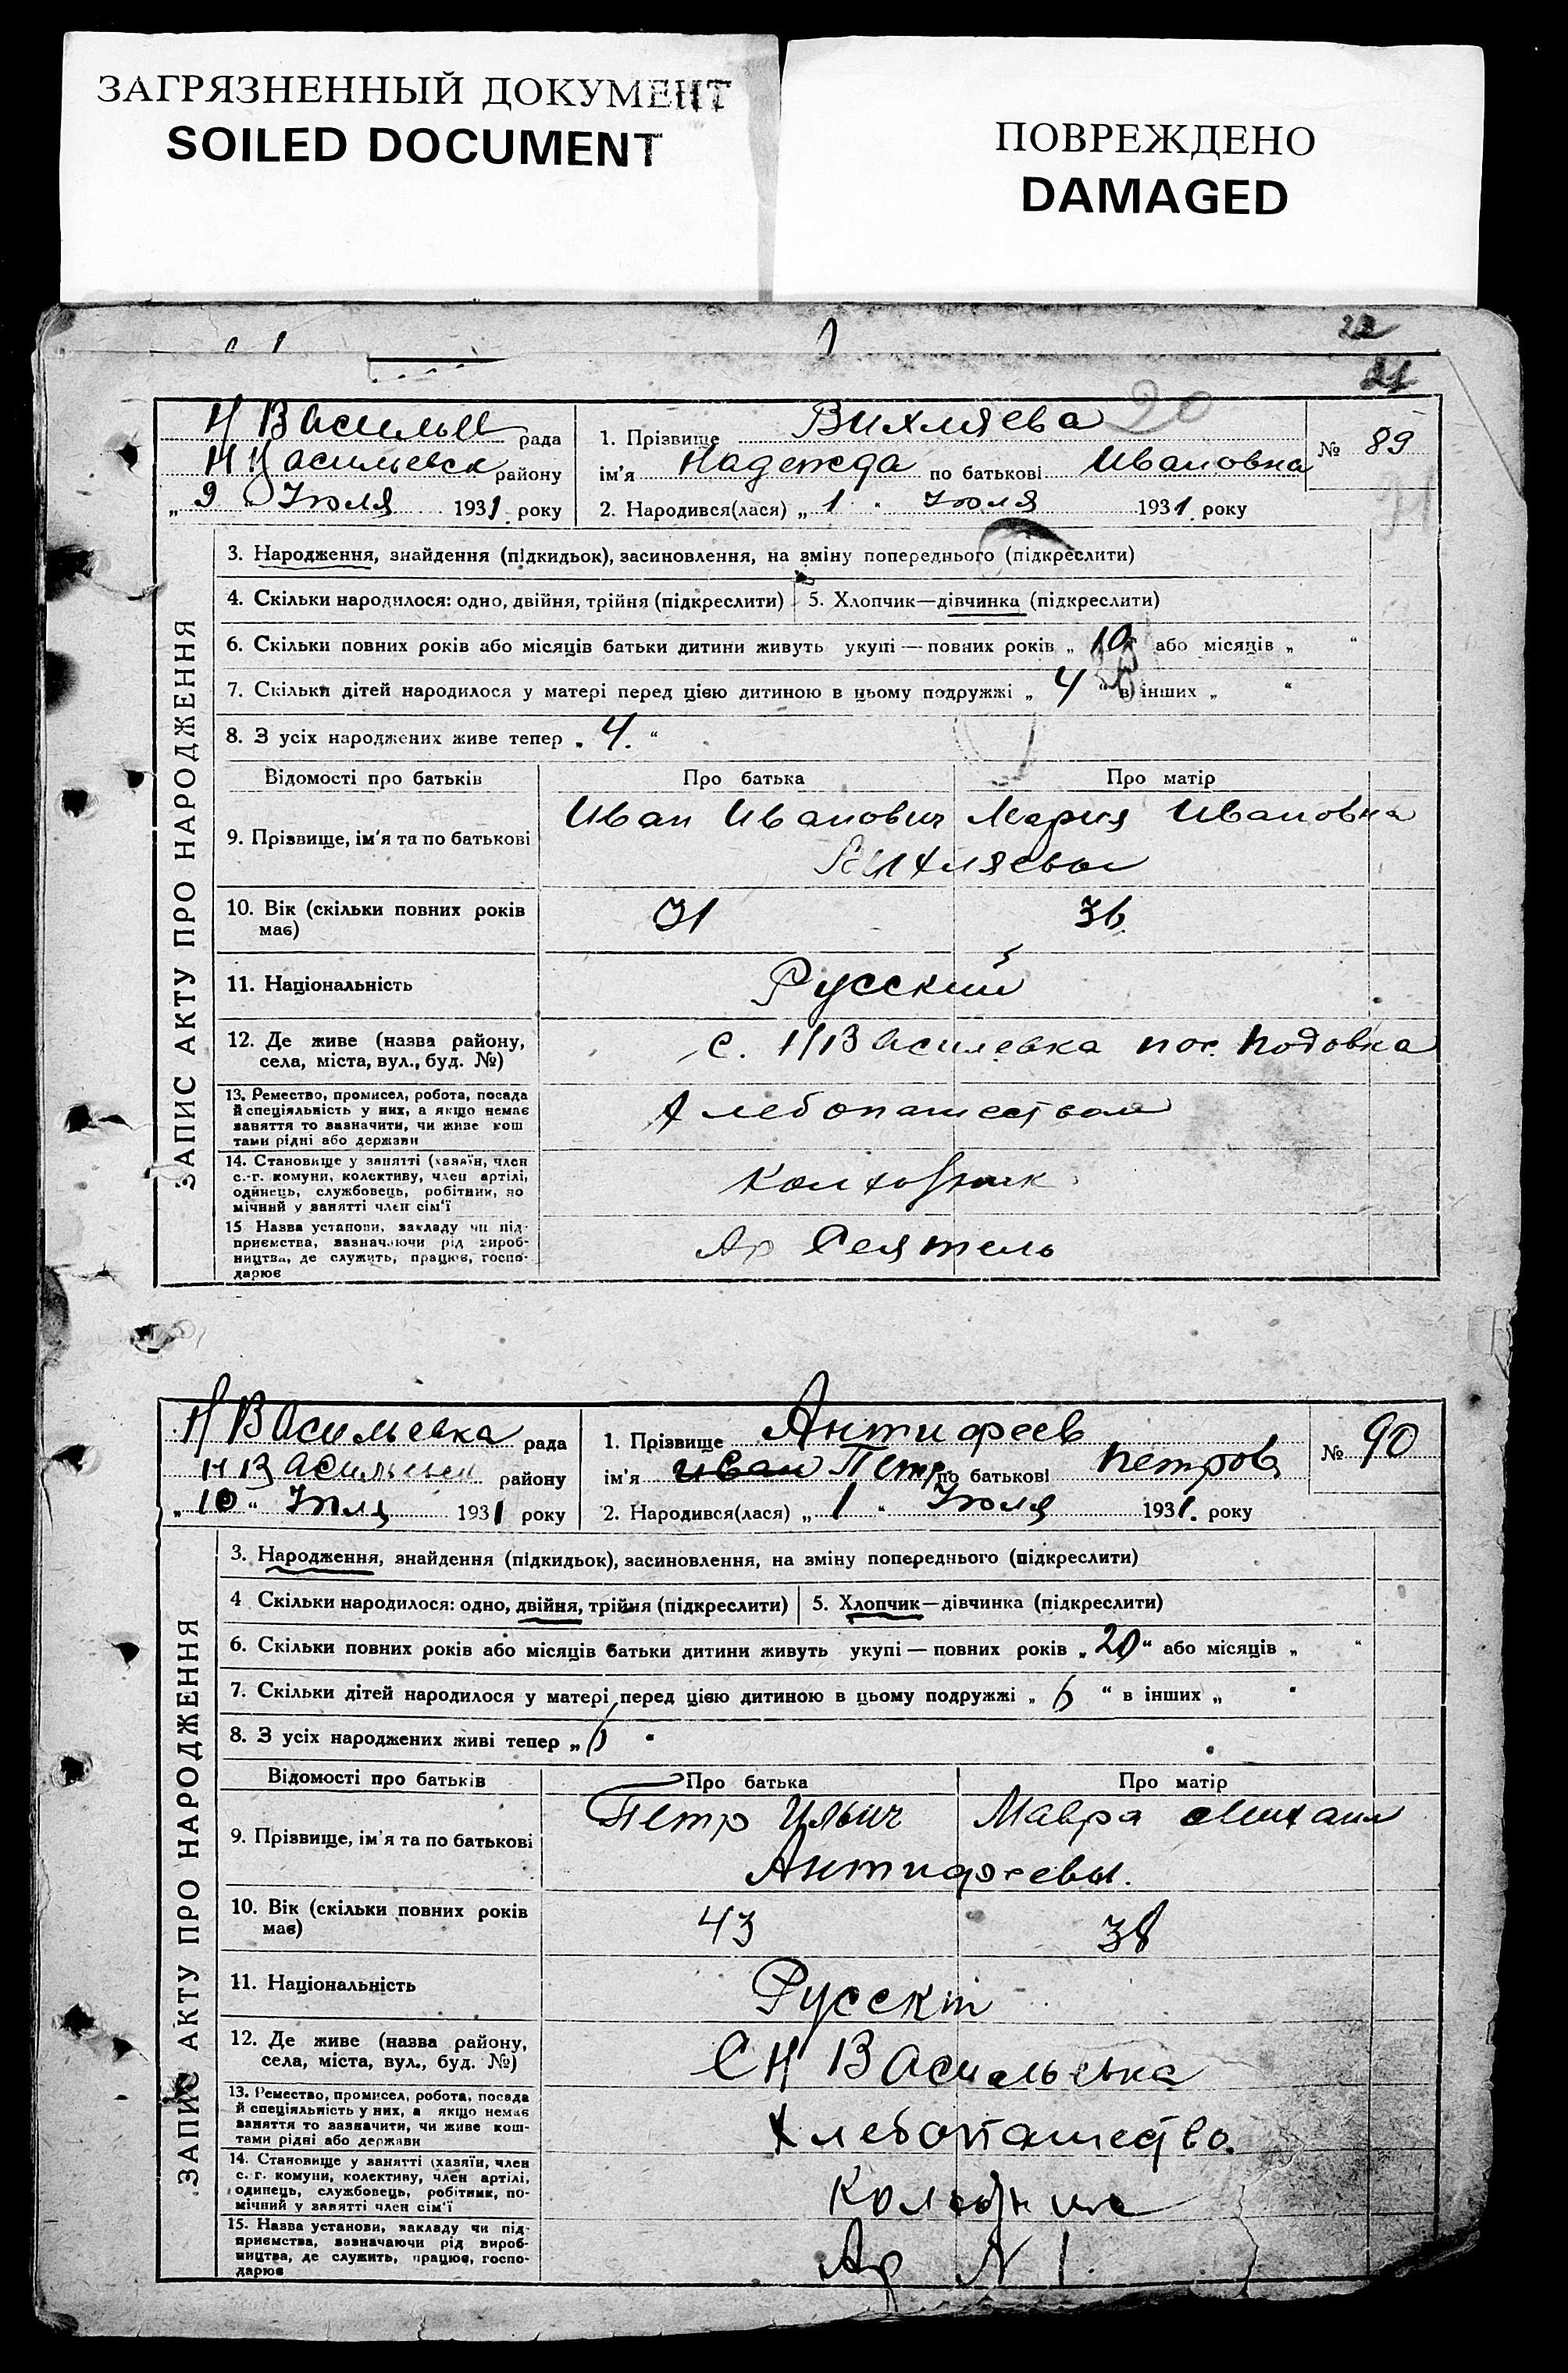 ЗАГРЯЗНЕННЫЙ ДОКУМЕНТ
SOILED DOCUMENT
ПОВРЕЖДЕНО
DAMAGED
22
21
20
Н Васильев рада
Н Васильевск району
„ 9 " Июля 1931 року
1. Прізвище Вихляева
ім'я Надежда по батькові Ивановна
2. Народився(лася) „ 1 " Июля 1931 року
№ 89
ЗАПИС АКТУ ПРО НАРОДЖЕННЯ
3. Народження, знайдення (підкидьок), засиновлення, на зміну попереднього (підкреслити)
4. Скільки народилося: одно, двійня, трійня (підкреслити)
5. Хлопчик—дівчинка (підкреслити)
6. Скільки повних років або місяців батьки дитини живуть укупі — повних років „ 10 " або місяців „ "
7. Скільки дітей народилося у матері перед цією дитиною в цьому подружжі „ 4 " в інших „ "
8. З усіх народжених живе тепер „ 4. "
Відомості про батьків Про батька Про матір
9. Прізвище, ім'я та по батькові
Иван Иванович Мария Ивановна
Вихляевы
10. Вік (скільки повних років
має)
31 36
11. Національність
Русский
12. Де живе (назва району,
села, міста, вул., буд. №)
с. Н/Василевка пос. Подовка
13. Ремество, промисел, робота, посада
й спеціяльність у них, а якщо немає
заняття то зазначити, чи живе кош
тами рідні або держави
Хлебопашеством
14. Становище у занятті (хазяїн, член
с.-г. комуни, колективу, член артілі,
одинець, службовець, робітник, по
мічний у занятті член сім'ї
Колхозник
15 Назва установи, закладу чи під-
приємства, зазначаючи рід вироб-
ництва, де служить, працює, госпо-
дарює
Ар Сеятель
Н Васильевка рада
Н Васильевск району
„ 10 " Июля 1931 року
1. Прізвище Антифеев
ім'я Иван Петр по батькові Петров
2. Народився(лася) „ 1 " Июля 1931. року
№ 90
ЗАПИС АКТУ ПРО НАРОДЖЕННЯ
3. Народження, знайдення (підкидьок), засиновлення, на зміну попереднього (підкреслити)
4 Скільки народилося: одно, двійня, трійня (підкреслити)
5. Хлопчик—дівчинка (підкреслити)
6. Скільки повних років або місяців батьки дитини живуть укупі — повних років „ 20 " або місяців „ "
7. Скільки дітей народилося у матері перед цією дитиною в цьому подружжі „ 6 " в інших „ "
8. З усіх народжених живі тепер „ 6 "
Відомості про батьків Про батька Про матір
9. Прізвище, ім'я та по батькові
Петр Ильич Мавра Михаил
Антифеевы.
10. Вік (скільки повних років
має)
43 38
11. Національність
Русскій
12. Де живе (назва району,
села, міста, вул., буд. №)
С Н Васильевка
13. Ремество, промисел, робота, посада
й спеціяльність у них, а якщо немає
заняття то зазначити, чи живе кош-
тами рідні або держави
Хлебопашество.
14. Становище у занятті (хазяїн, член
с. г. комуни, колективу, член артілі,
одинець, службовець, робітник, по-
мічний у занятті член сім'ї
15. Назва установи, закладу чи під-
приємства, зазначаючи рід вироб-
ництва, де служить, працює, госпо-
дарює
Ар N 1.